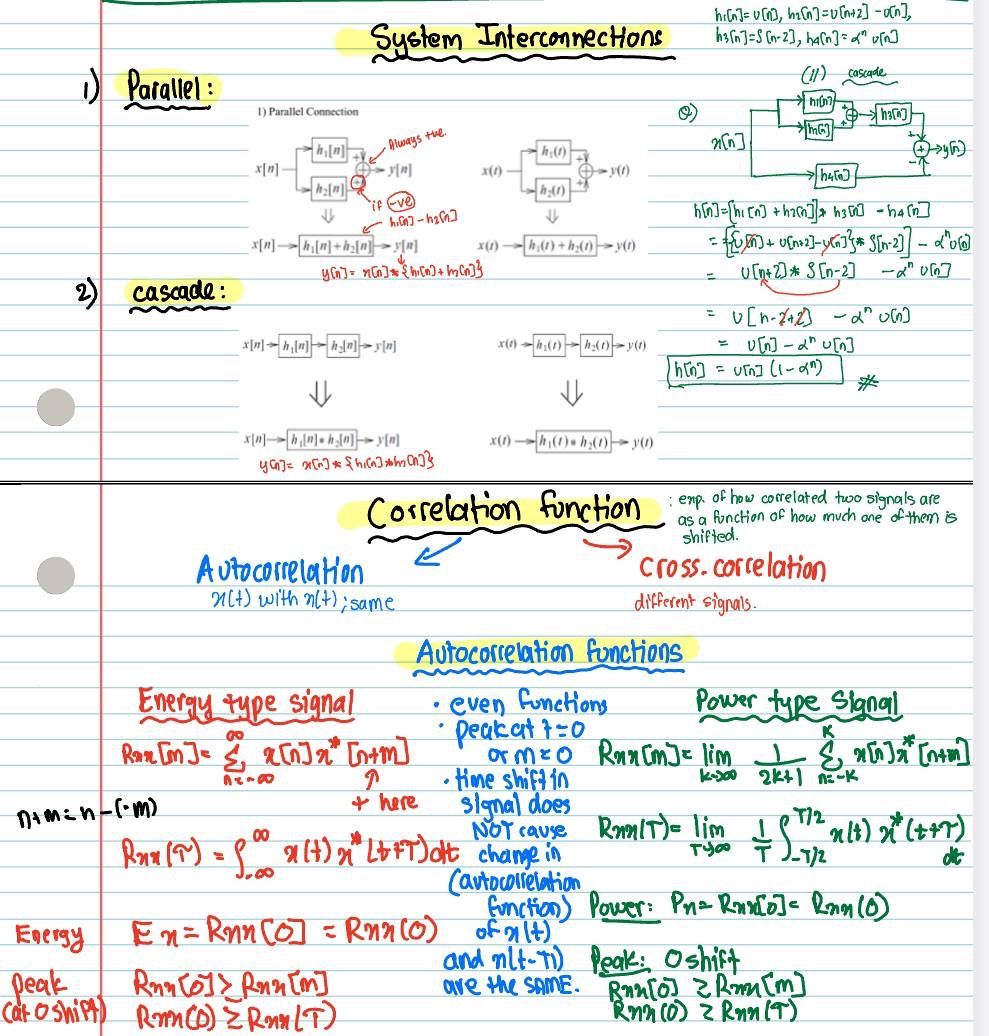 h1[n]=u[n], h2[n]=u[n+2]-u[n],
h3[n]=δ[n-2], h4[n]=αⁿ u[n]
System Interconnections
1) Parallel:
1) Parallel Connection
x[n]
h₁[n]
h₂[n]
+
+
y[n]
Always +ve.
if -ve
h1[n]-h2[n]
⇓
x[n]→h₁[n]+h₂[n]→y[n]
y[n]= x[n]*{h1[n]+h2[n]}
x(t)
h₁(t)
h₂(t)
+
+
y(t)
⇓
x(t)→h₁(t)+h₂(t)→y(t)
(//) cascade
Q)
x[n]
h1[n]
h2[n]
h3[n]
h4[n]
+
-
y[n]
h[n]=[h1[n]+h2[n]]*h3[n] -h4[n]
={{u[n]+u[n+2]-u[n]}*δ[n-2]} - αⁿu[n]
= u[n+2]*δ[n-2] -αⁿ u[n]
= u[n-2+2] -αⁿ u[n]
= u[n]-αⁿ u[n]
h[n] = u[n] (1-αⁿ) #
2) cascade:
x[n]→h₁[n]→h₂[n]→y[n]
x(t)→h₁(t)→h₂(t)→y(t)
⇓
⇓
x[n]→h₁[n]*h₂[n]→y[n]
x(t)→h₁(t)*h₂(t)→y(t)
y[n]= x[n]*{h1[n]*h2[n]}
Correlation function
: exp. of how correlated two signals are
as a function of how much one of them is
shifted.
Autocorrelation
x(t) with x(t); same
Cross-correlation
different signals.
Autocorrelation functions
Energy type signal
Rxx[m]= ∞Σn=-∞ x[n]x*[n+m]
+ here
n+m=n-(-m)
Rxx(τ) = ∫-∞^∞ x(t) x*(t+τ)dt
Energy Ex=Rxx[0] = Rxx(0)
Peak Rxx[0]≥Rxx[m]
(at 0 shift) Rxx(0) ≥Rxx(τ)
• even functions
• peak at t=0
or m=0
• time shift in
signal does
NOT cause
change in
(autocorrelation
function)
of x(t)
and x(t-T1)
are the SAME.
Power type signal
Rxx[m]= lim k→∞ 1/2k+1 KΣn=-K x[n]x*[n+m]
Rxx(τ)= lim T→∞ 1/T ∫-T/2^T/2 x(t) x*(t+τ) dt
Power: Px= Rxx[0]= Rxx(0)
Peak: 0 shift
Rxx[0] ≥ Rxx[m]
Rxx(0) ≥ Rxx(τ)